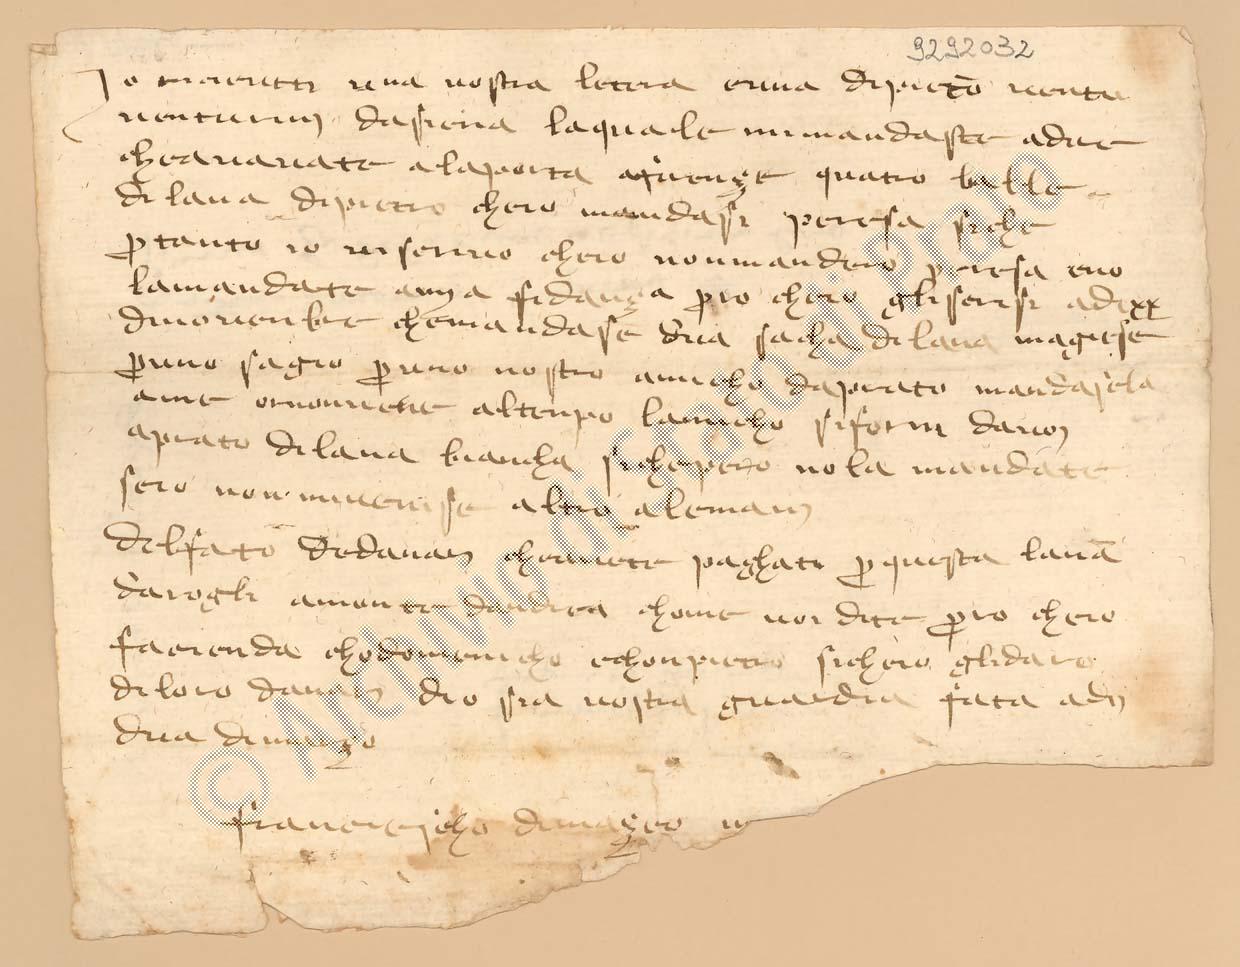 9292032
Io ricievetti una vostra letera e una di pietō venture
venturini da siena la quale mi mandaste a dre
che avavate a la porta a firenze quatro balle
di lana di pietro chero mandasi per esa siche
p tanto io vi scrivo chero non mandero p esa eno
la mandate a mia fidanza p io chero gli scrisi adi xx
di novenbre che mandase dua sacha di lana magiese
p uno sagio p uno nostro amicho da prato mandasela
a me ora non vene al tenpo l amicho si forni
a prato di lana biancha siche pero no la mandate
sero non vi iscrise altro a le mani
del fato de danari che avete paghati p questa lana
darogli a monte d andrea chome voi dite p io chero
facienda cho domenicho e chon pietro sichero gli daro
di loro danari dio sia vostra guardia fata adi
dua di marzo
franciescho di marcho
© Archivio di Stato di Prato